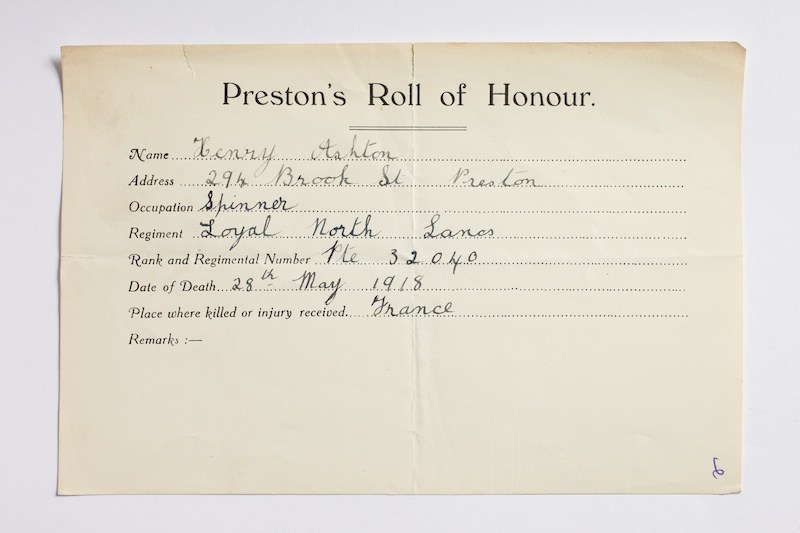 Preston's Roll of Honour.
Name Henry Ashton
Address 294 Brook St Preston
Occupation Spinner
Regiment Loyal North Lancs
Rank and Regimental Number Pte 32040
Date of Death 28th May 1918
Place where killed or injury received. France
Remarks :—